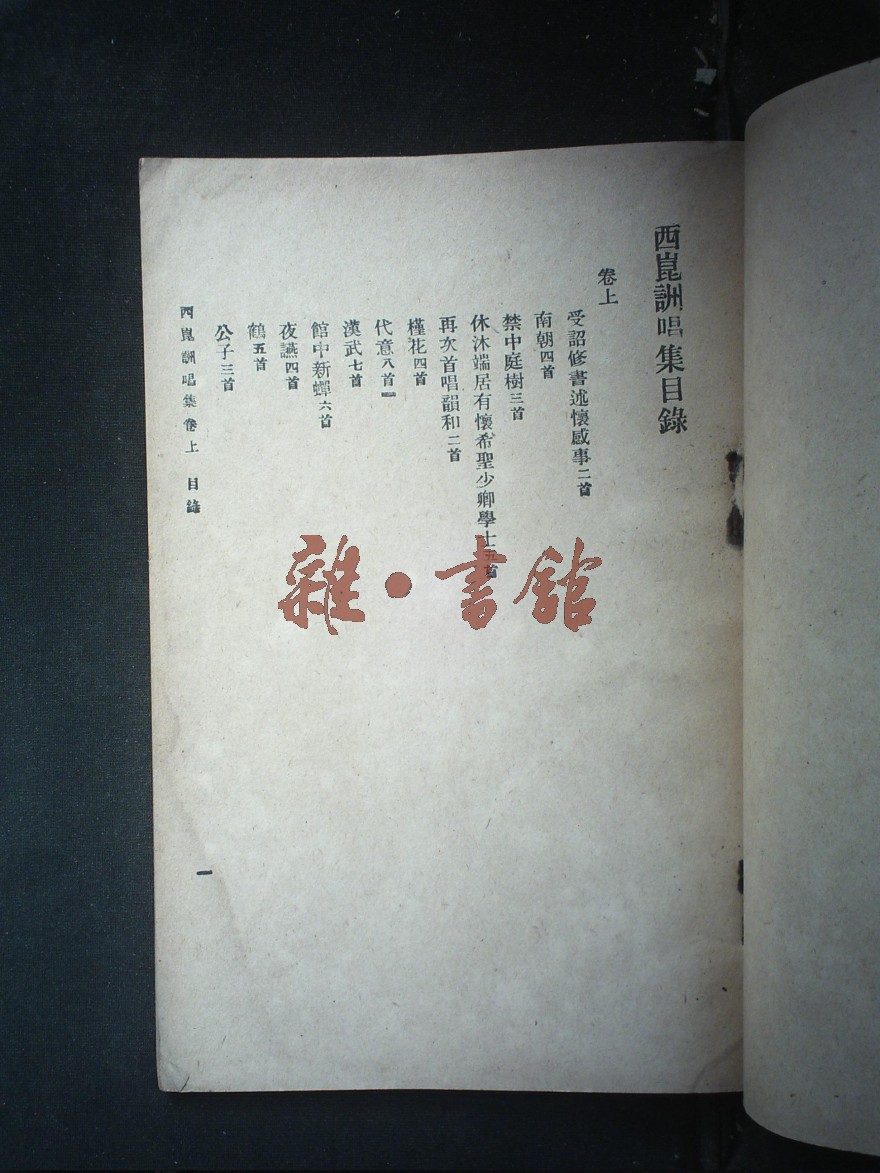 西崑詶唱集目錄
卷上
受詔修書述懷感事二首
南朝四首
禁中庭樹三首
休沐端居有懷希聖少卿學士五首
再次首唱韻和二首
槿花四首
代意八首
漢武七首
館中新蟬六首
夜讌四首
鶴五首
公子三首
西崑詶唱集卷上 目錄
一
雜·書館